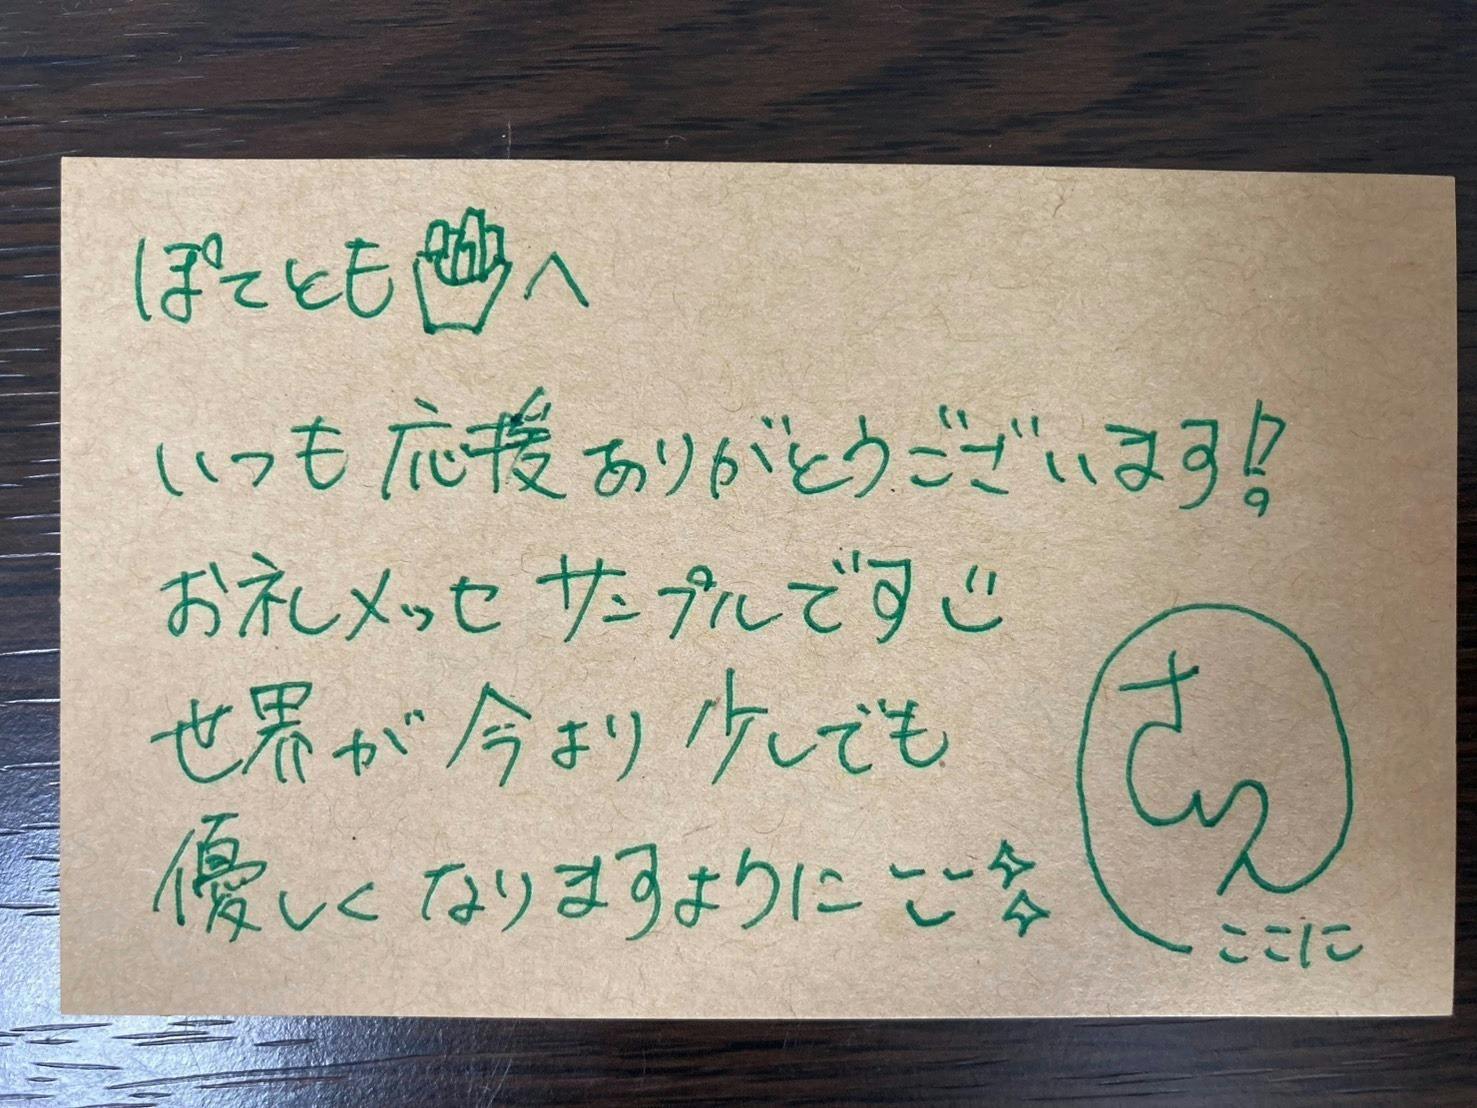 ぽてとも🍟へ
いつも応援ありがとうございます!?
お礼メッセサンプルです
世界が今より少しでも
優しくなりますように
さいん
ここに